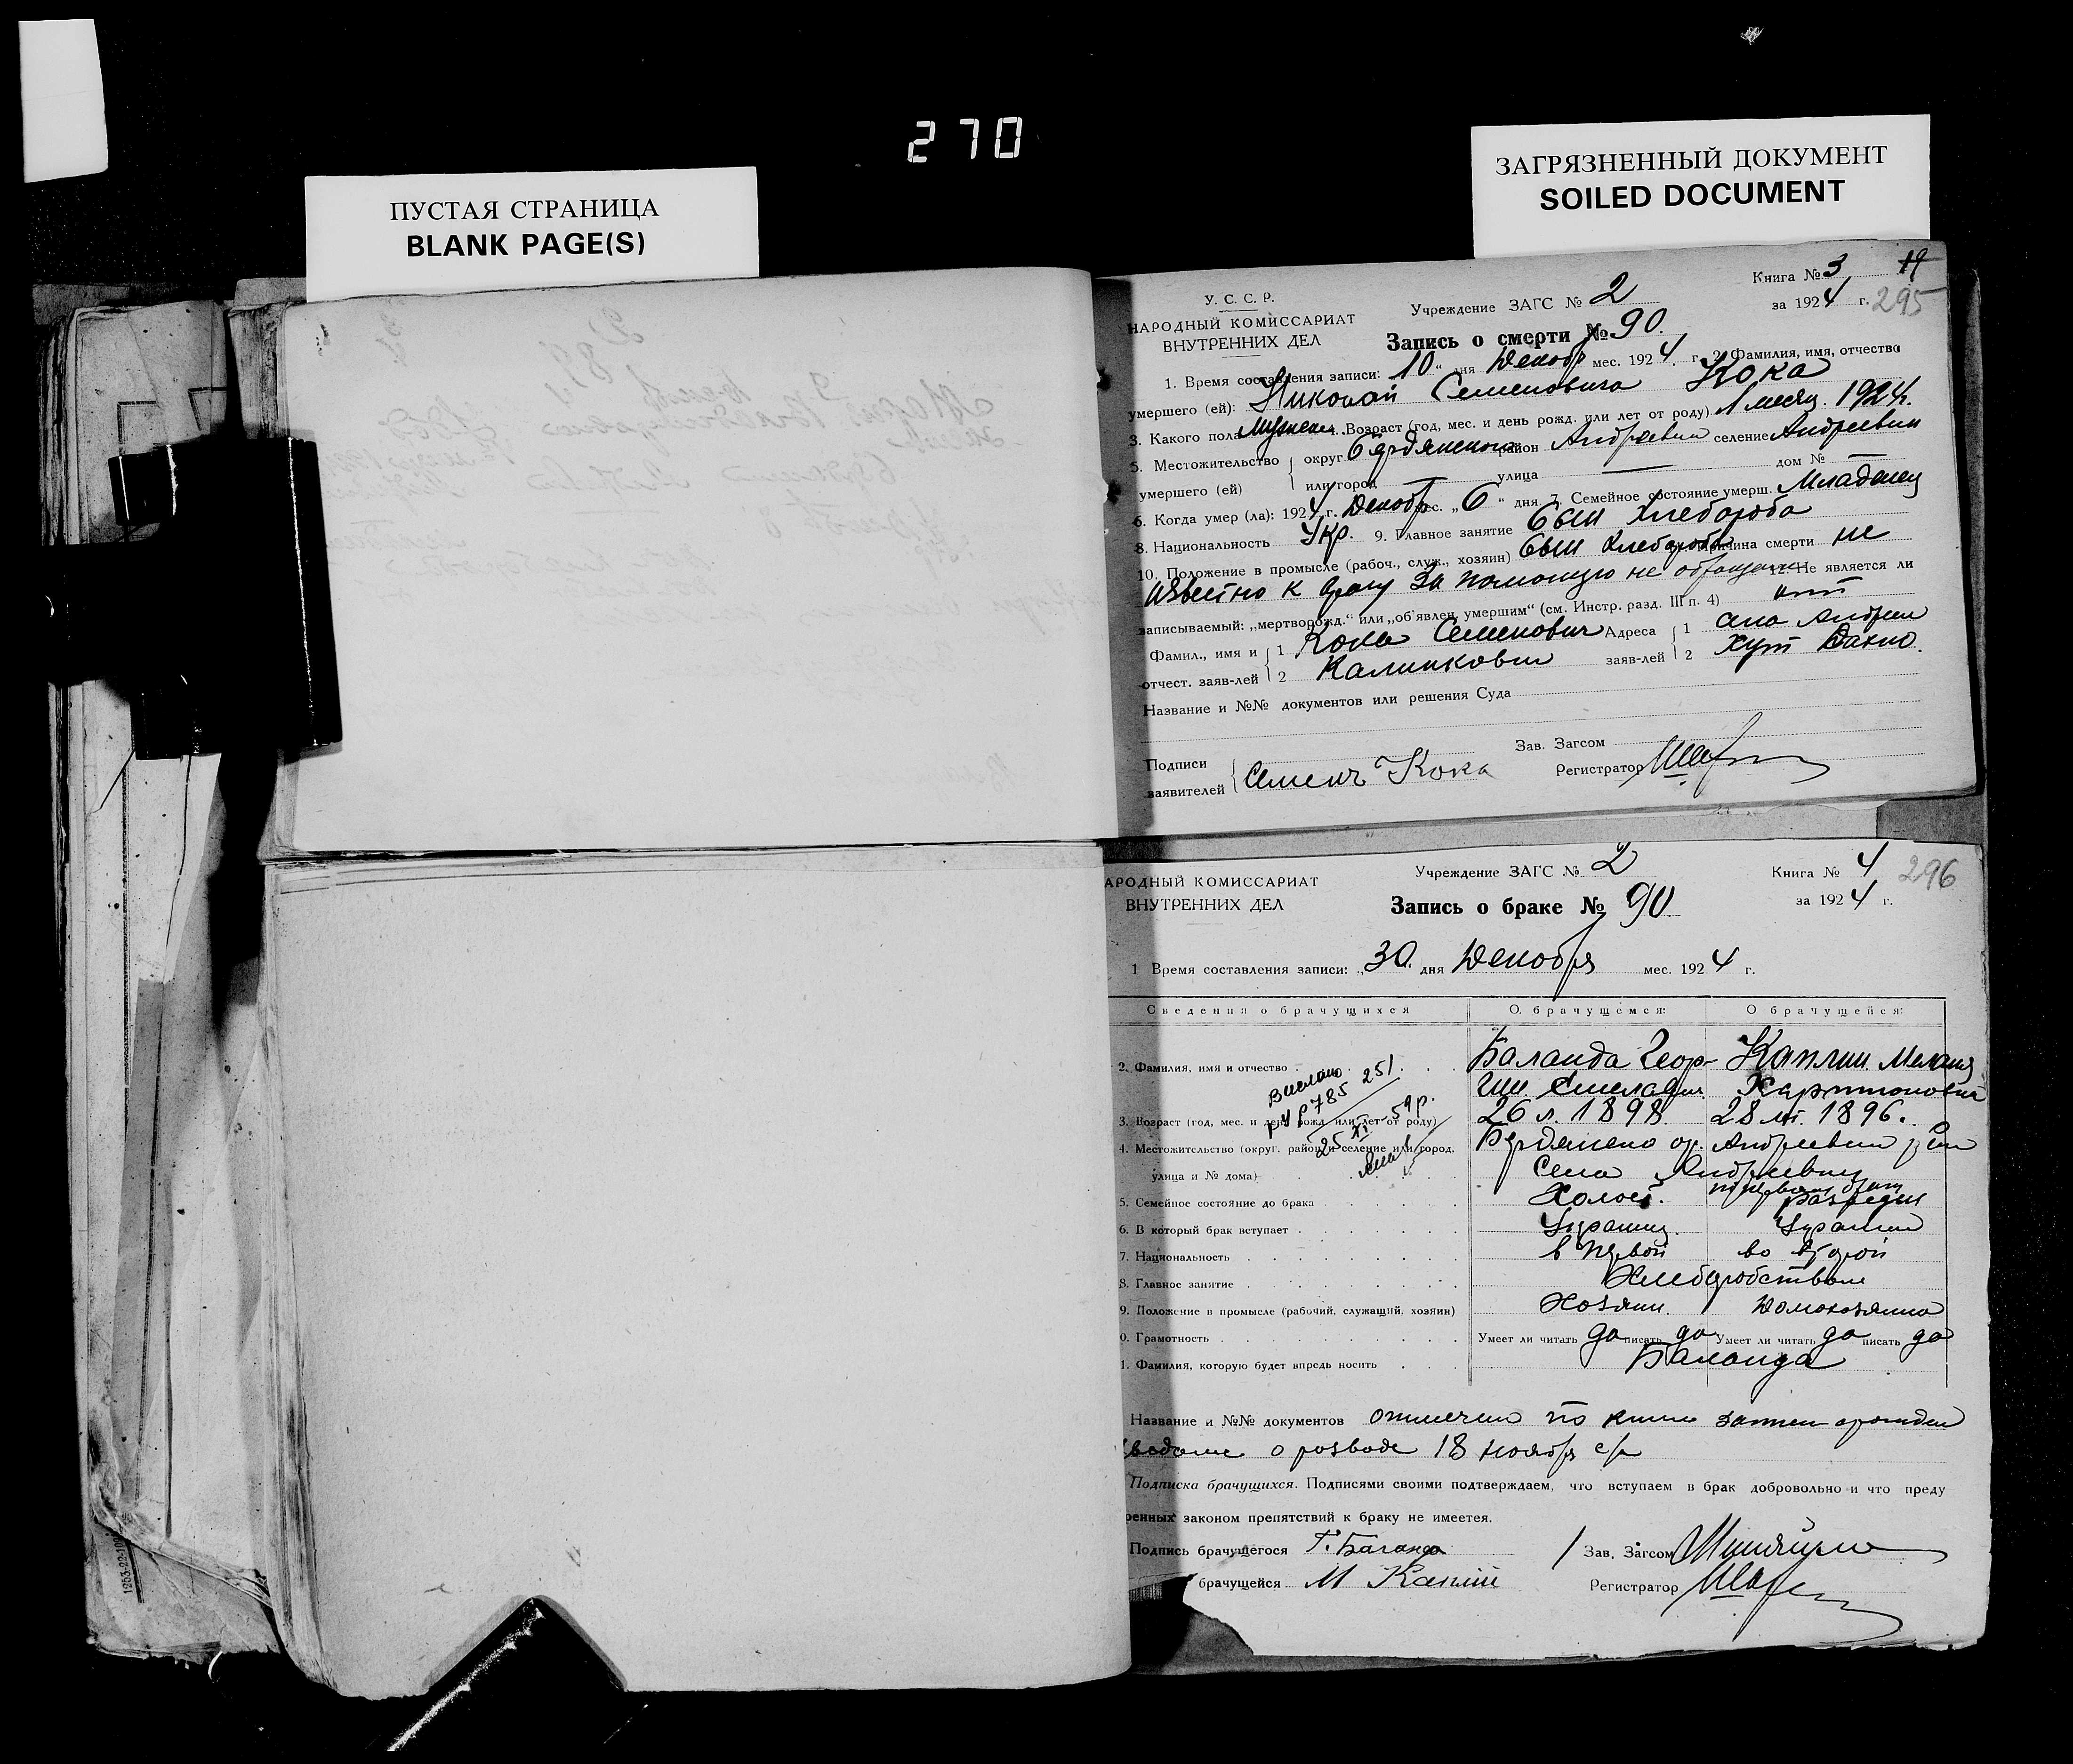 270
ПУСТАЯ СТРАНИЦА
BLANK PAGE(S)
ЗАГРЯЗНЕННЫЙ ДОКУМЕНТ
SOILED DOCUMENT
У. С. С. Р.
НАРОДНЫЙ КОМИССАРИАТ
ВНУТРЕННИХ ДЕЛ
Учреждение ЗАГС № 2
Книга № 3
за 1924 г. 295
Запись о смерти № 90.
1. Время составления записи: 10 " дня Декабр мес. 1924 г. 2. Фамилия, имя, отчество
умершего (ей): Николай Семеновича Кока
3. Какого пола 4. Возраст (год, мес. и день рожд. или лет от роду) 1 месяц. 1924 г.
5. Местожительство округ Бердянского район Андреевки селение Андреевки
умершего (ей) или город — улица — дом № —
6. Когда умер (ла): 1924 г. Декабр мес. „ 6 " дня 7. Семейное состояние умерш. Младенец
8. Национальность Укр. 9. Главное занятие Сын хлебороба
10. Положение в промысле (рабоч., служ., хозяин) Сын хлебороба Причина смерти не
известно к врачу за помощью не 12. Не является ли
записываемый: „мертворожд." или „об'явлен умершим" (см. Инстр. разд. III п. 4) нет
Фамил., имя и 1 Кока Семенович Адреса 1 Андреев
отчест. заяв-лей 2 заяв-лей 2 хут
Название и №№ документов или решения Суда
Зав. Загсом
Подписи
заявителей Семенъ Кока Регистратор
НАРОДНЫЙ КОМИССАРИАТ
ВНУТРЕННИХ ДЕЛ
Учреждение ЗАГС № 2
Книга № 4 296
за 1924 г.
Запись о браке № 90
1 Время составления записи: „ 30 " дня Декабря мес. 1924 г.
Сведения о брачущихся О. брачущемся: О брачущейся:
2. Фамилия, имя и отчество Баланда Геор- Каплин Мелания
Харитоновна
3. Возраст (год, мес. и день рожд. или лет от роду) 26 л. 1898 28 лт. 1896.
785 251
4. Местожительство (округ, район и селение или город, Бердянско ок. Андреевки р
улица и № дома) Село Андреевки
5. Семейное состояние до брака Холост.
6. В который брак вступает Украинц
7. Национальность в первой во второй
8. Главное занятие Хлеборобством
9. Положение в промысле (рабочий, служащий, хозяин) Хозяин. Домохозяйка
0. Грамотность Умеет ли читать да писать да Умеет ли читать да писать да
1. Фамилия, которую будет впредь носить Баланда
Название и №№ документов отмечено по книге
о розводе 18 ноября с/г
Подписка брачущихся. Подписями своими подтверждаем, что вступаем в брак добровольно и что преду
ренных законом препятствий к браку не имеется.
Подпись брачущегося Г. Баланда Зав. Загсом
брачущейся М Каплій Регистратор
1253-22-109